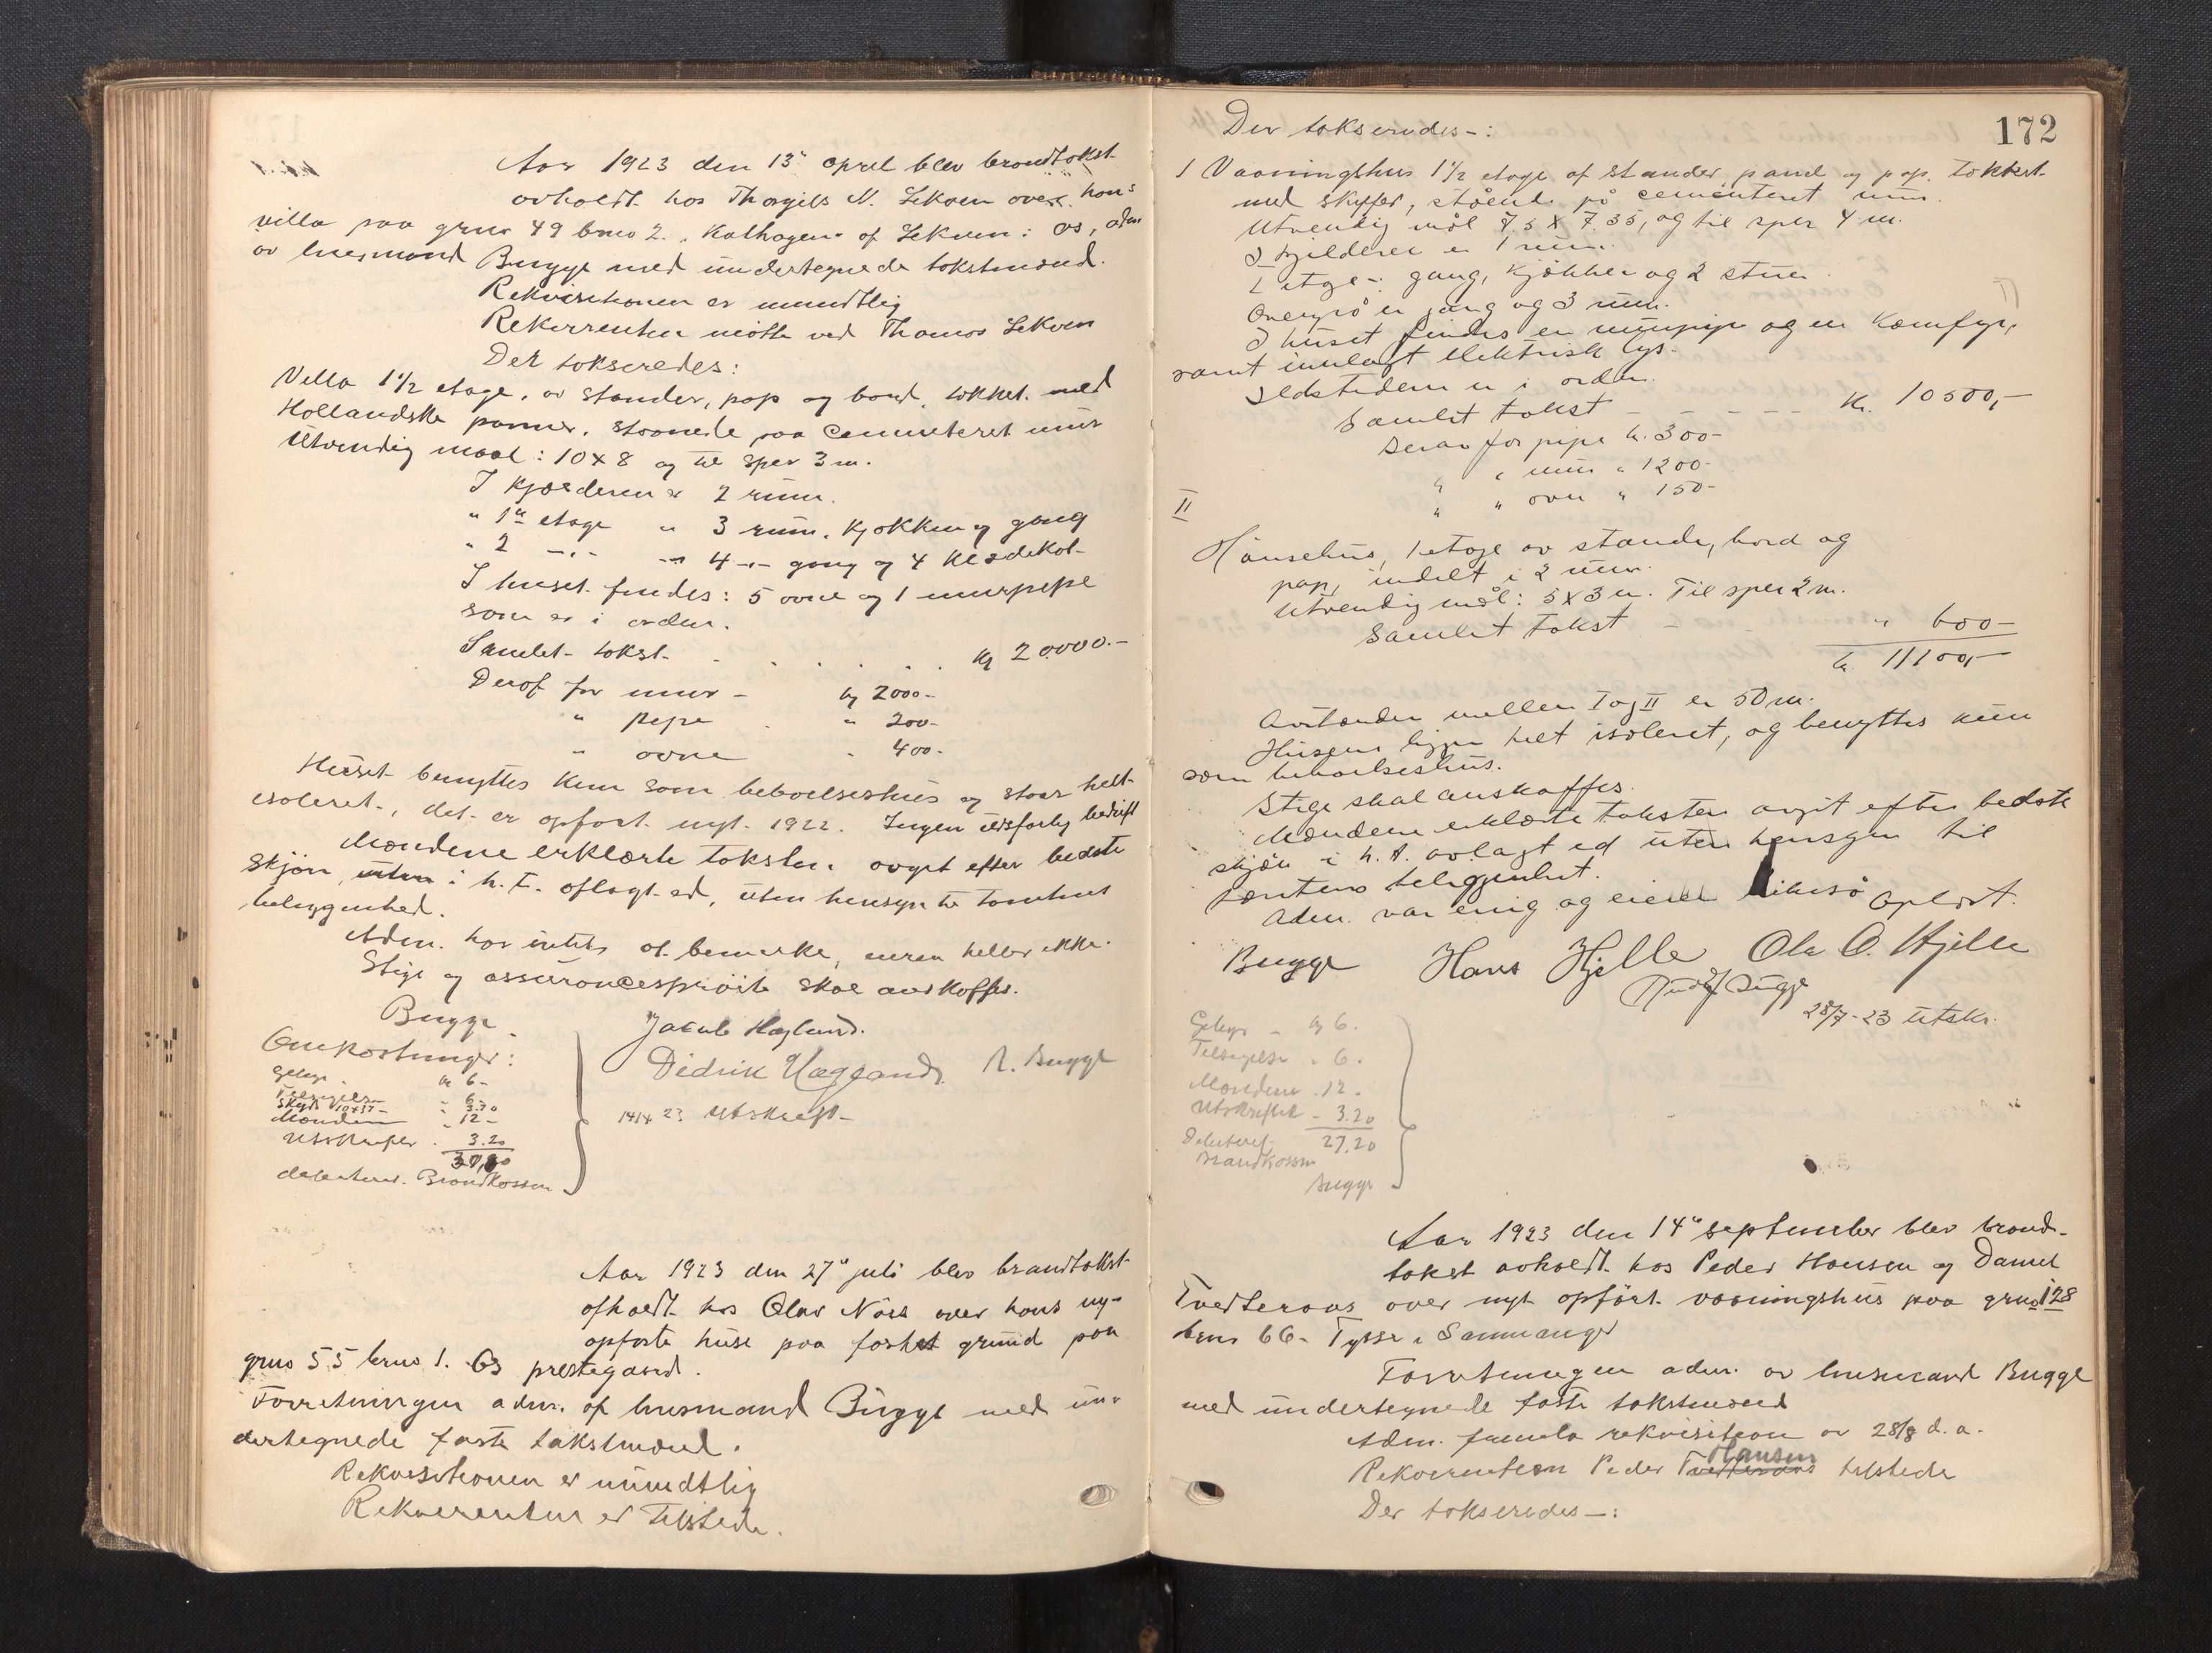 Aar 1923 den 13' april blev brandtakst
avholdt hos Thorgils N. Lekven over hans
villa paa grno 49 brno 2. Kalhagen af Lekven i Os, adm
av lensmand Bugge med undertegnede takstmænd.
Rekvisitionen er mundtlig
Rekvirenten møtte ved Thomas Lekven
Det takseredes:
Villa 1½ etage, av stander, pap og bord, tækket med
Hollandske panner, staaende paa cementeret mur
Utvendig maal: 10 x 8 og til sper 3 m.
I kjælderen er 2 rum.
" 1ste etage " 3 rum, kjøkken og gang
" 2 -"- -"- 4 -"- gang og 4 klædekot-
I huset findes: 5 ovne og 1 murpipe
som er i orden.
Samlet takst . . . . . . kr 20000.-
Deraf for mur - kr 2000-
" pipe . " 200-
" ovne " 400-
Huset benyttes kun som beboelseshus og staar helt
isoleret, det er opført nyt 1922. Ingen ildsfarlig bedrift
Mændene erklærte taksten avgit efter bedste
skjøn, uten i h.t. aflagt ed, uten hensyn til tomtens
beliggenhed.
Adm. har intet at bemerke, eieren heller ikke.
Stige og assurancesprøite skal anskaffes.
Bugge
Jakob Haglund.
Didrik Hæggland. R. Bugge
14/4 23 Utskrift-
Omkostninger:
Gebyr . kr 6-
Tilsigelse " 6-
Skyds 10x37- " 3.70
Mændene " 12-
Utskriften . 3.20
debiteres Brandkassen
Aar 1923 den 27' juli blev brandtakst
afholdt hos Olav Nörs over hans ny-
opførte huse paa fæstet grund paa
grno 55 brno 1. Os prestegaard.
Forretningen adm. af lensmand Bugge med un-
dertegnede faste takstmænd.
Rekvisitionen er mundtlig
Rekvirenten er tilstede.
172
Der takseredes-:
I Vaaningshus 1½ etage af stander panel og pap. Tækket
med skiffer, stående på cementeret mur.
Utvendig mål 7.5 x 7.35, og til sper 4 m.
I kjelderen er 1 rum.
1 etge -: gang, kjøkken og 2 stuer
Ovenpå er gang og 3 rum.
I huset findes en murpipe og en Komfyr,
samt innlagt elektrisk lys.
Ildstedene er i orden.
Samlet takst - - - - - - kr. 10500,-
Derav for pipe kr. 300-
" " mur " 1200-
" " ovn " 150-
II
Hønsehus, 1 etage av stander, bord og
pap, indelt i 2 rum.
Utvendig mål: 5 x 3 m. Til sper 2 m.
Samlet takst - " 600-
kr. 11100,-
Avstanden mellem I og II er 50 m.
Husene ligger helt isoleret, og benyttes kun
som beboelseshus.
Stige skal anskaffes.
Mændene erklærte taksten avgit efter bedste
skjøn i h.t. avlagt ed uten hensyn til
tomtens beliggenhet.
Adm. var enig og eieren likeså Oplæst.
Bugge Hans Hjelle Ola O. Hjelle
Rudolf Bugge
28/7-23 Utskr.
Gebyr - kr 6.
Tilsigelse " 6.
Mændene . 12 -
Utskriften - 3.20
Debiteret 27,20
Brandkassen
Bugge
Aar 1923 den 14' september blev brand-
takst avholdt hos Peder Hansen og Daniel
Tvedteraas over nyt opført vaaningshus paa grno 128
brno 66- Tysse i Samnanger
Forretningen adm. av lensmand Bugge
med undertegnede faste takstmænd
Adm. fremla rekvisition av 28/8 d.a.
Hansen
Rekvirenten Peder Tvedteraas tilstede
Der takseredes-: